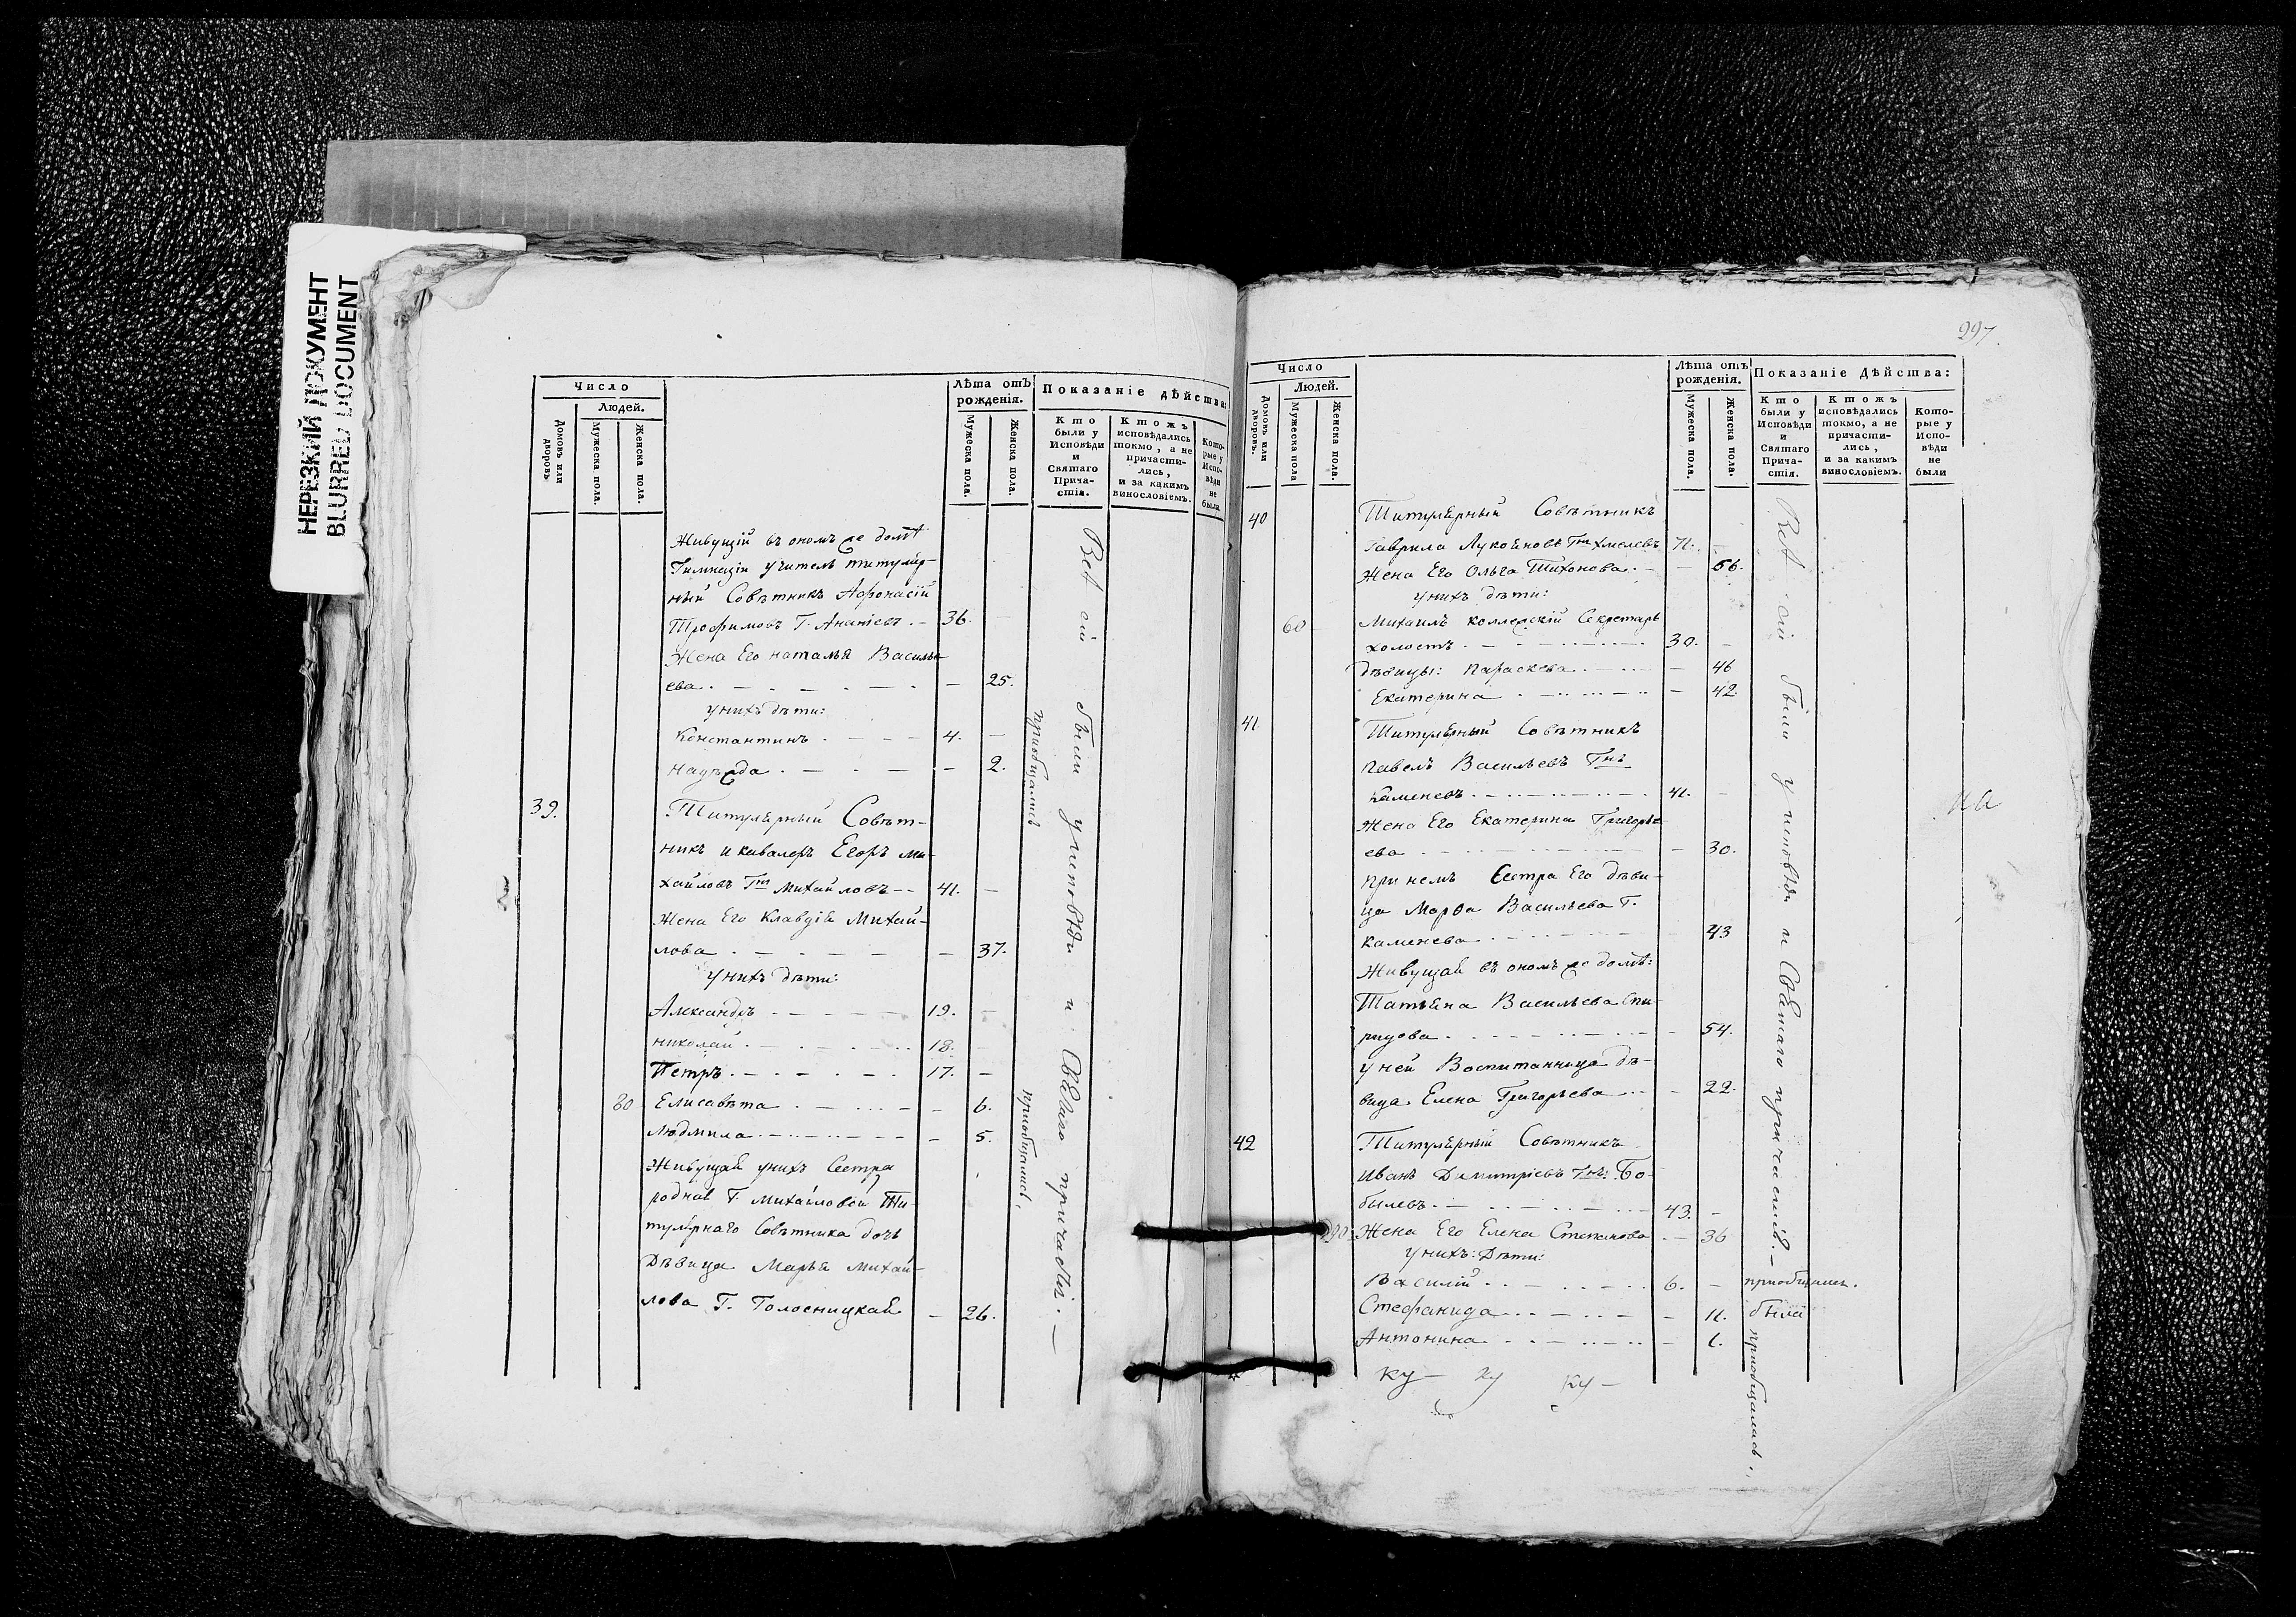 НЕРЕЗКИЙ ДОКУМЕНТ
BLURRED DOCUMENT
Число
Людей.
Домовъ или дворовъ.
Мужеска пола.
Женска пола.
Лѣта отъ рожденія.
Мужеска пола.
Женска пола.
Показаніе дѣйства:
Кто были у Исповѣди и Святаго Прича-стія.
Ктожъ исповѣдались токмо, а не причасти-лись, и за какимъ винословіемъ.
Кото-рые у Испо-вѣди не были.
Живущій въ ономъ же домѣ
Гимназіи учитель титуляр-
ный Совѣтникъ Афонасій
Трофимовъ Г. Ананіевъ . – 36. –
Жена Его Наталья Василь-
ева . – 25.
у нихъ дѣти:
Константинъ . 4. –
Надежда . – 2.
39. Титулярный Совѣт-
никъ и кавалеръ Егоръ Ми-
хайловъ Гнъ Михайловъ – 41. –
Жена Его Клавдія Михай-
лова . – 37.
у нихъ дѣти:
Александръ 19. –
Николай . 18. –
Петръ . 17. –
80 Елисавета . – 6.
Людмила . – 5.
Живущая у нихъ Сестра
родная Г. Михайловой Ти-
тулярнаго Совѣтника дочь
Дѣвица Марья Михай-
лова Г. Голосницкая – 26.
Всѣ сіи были у исповѣди и Святаго причастія. –
приобщались
приобщались,
997.
Число
Людей.
Домовъ или дворовъ.
Мужеска пола
Женска пола.
Лѣта отъ рожденія.
Мужеска пола.
Женска пола.
Показаніе Дѣйства:
Кто были у Исповѣди и Святаго Прича-стія.
Ктожъ исповѣдались токмо, а не причасти-лись, и за какимъ винословіемъ.
Кото-рые у Испо-вѣди не были
40 Титулярный Совѣтникъ
Гаврила Лукояновъ Гнъ Хмелевъ 71. –
Жена Его Ольга Тихонова . – 66.
у нихъ дѣти:
60 Михаилъ коллежскій Секретарь
холостъ . 30. –
дѣвицы: Параскева – 46
Екатерина . – 42.
41 Титулярный Совѣтникъ
Павелъ Васильевъ Гнъ
Каменевъ . 41. –
Жена Его Екатерина Григорье-
ева – 30.
При немъ Сестра Его дѣви-
ца Марфа Васильева Г.
Каменева . – 43
Живущая въ ономъ же домѣ:
Татьяна Васильева Спи-
ридова . – 54.
у ней Воспитанница дѣ-
вица Елена Григорьева – 22.
42 Титулярный Совѣтникъ
Иванъ Димитріевъ Гнъ: Бо-
былевъ . 43. –
90. Жена Его Елена Степанова . – 36
у нихъ: Дѣти:
Василій . 6. – приобщались.
Стефанида . – 11. была
Антонина . – 1.
Всѣ сіи были у исповѣди и Святаго причастія. –
приобщались.